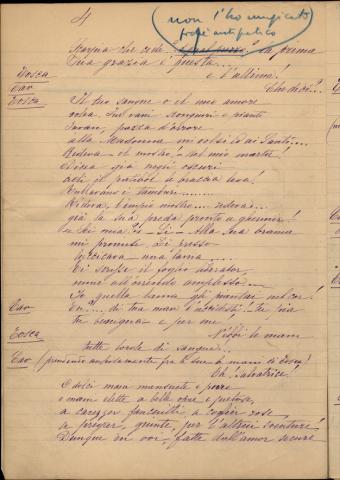 4
non l'ho musicato
perché antipatico
Scarpia che cede la prima
Sua grazia è questa
e l'ultima!
Tosca
Cav
Che dici?
Tosca
Il tuo sangue o il mio amore
volea. Fur vani scongiuri e pianti
Invan, pazza d'orrore
alla Madonna mi volsi ed ai Santi...
Rideva il mostro
Dicea già nei oscuri
cieli il patibol le braccia leva!
Rullavano i tamburi......
Rideva, l'empio mostro... rideva...
già la sua preda pronto a ghermir!
Sei mia? – Sì – Alla sua brama
mi promisi. Lì presso
luccicava una lama....
Ei scrisse il foglio liberator,
venne all'orrendo amplesso....
Io quella lama gli piantai nel cor.
Cav
Tu?... di tua man l'uccidesti! tu pia
tu benigna e per me!
Tosca
N'ebbi le man
tutte lorde di sangue...
Cav (prendendo amorosamente fra le sue le mani di Tosca)
O dolci mani mansuete e pure
o mani elette a belle opre e pietose,
a carezzar fanciulli, a coglier rose
a pregar, giunte, per l'altrui sventure!
Dunque in voi, fatte dall'amor secure